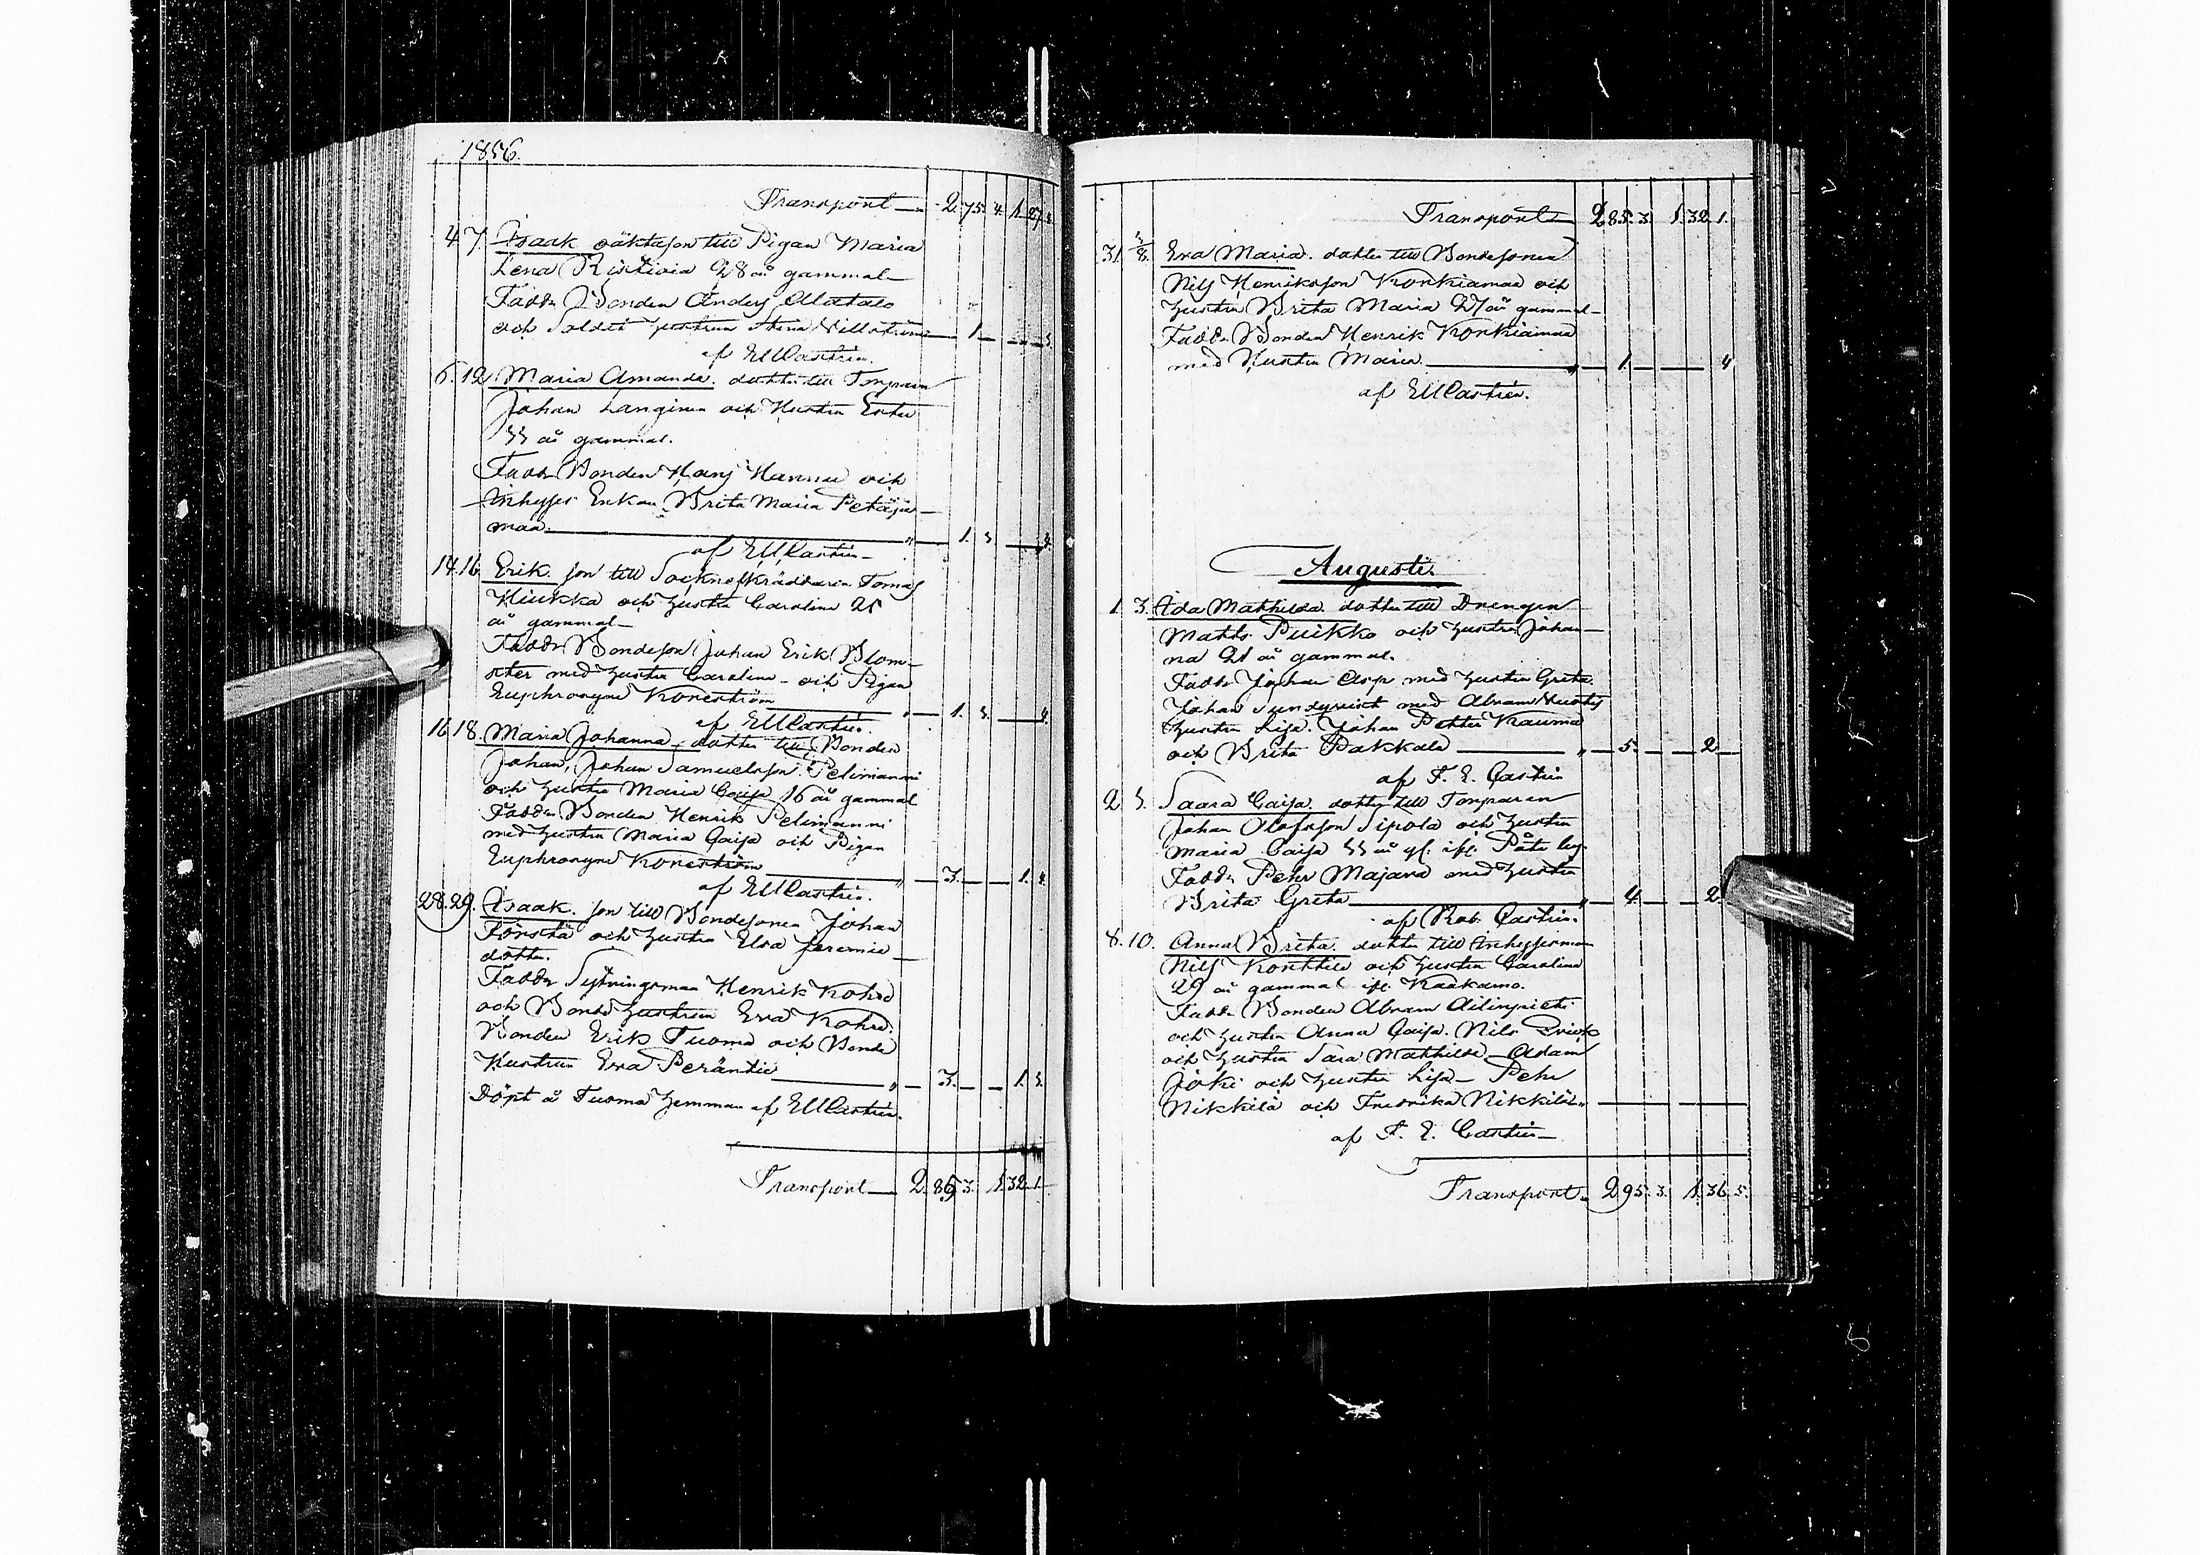 1856.
Transport 2.75. 4. 1. 27.
4. 7. Isaak oäktason till Pigan Maria
Lena Ristivia 28 år gammal
Fadd. Bonden Anders Alatalo
och Soldat hustrun Stina 1.
af EMCastrén.
6. 12. Maria Amanda. dotter till Torparen
Johan Langinen och Hustru Ester
33 år gammal.
Fadd. Bonden Hans Hannu och
Inhyses Enkan Brita Maria Petäjä-
maa. 1. 3.
af EMCastrén
14. 16. Erik son till Sockneskräddaren Tomas
Kiukka och hustru Carolina 25
år gammal
Fadd. Bondeson Johan Erik Blom-
ster med hustru Carolina och Pigan
Euphrosyne Konström 1. 3.
af EMCastrén.
16. 18. Maria Johanna, dotter till Bonden
Johan, Johan Samuelsson Pelimanni
och hustru Maria Caisa 16 år gammal
Fadd. Bonden Henrik Pelimanni
med hustru Maria Caisa och Pigan
Euphrosyne Konström 3. 1.
af EMCastrén.
28. 29. Isaak. son till Bondesonen Johan
Förstä och hustru Elsa Jeremie
dotter.
Fadd. Sytningsman Henrik Kohed
och Bonde hustrun Eva Kohed.
Bonden Erik Tuoma och Bonde
Hustrun Eva Peräntie 3. 1. 3.
Döpt å Tuoma hemman af EMCastrén.
Transport 2.85 3. 1. 32. 1.
Transport 285. 3. 1. 32. 1.
31. 3/8. Eva Maria. dotter till Bondesonen
Nils Henriksson Korkiamaa och
hustru Brita Maria 27 år gammal
Fadd. Bonden Henrik Korkiamaa
med Hustru Maria 1. 4
af EMCastrén.
Augusti.
1. 3. Ida Mathilda. dotter till Drengen
Matts Puikko och hustru Johan-
na 21 år gammal.
Fadd. Johan Asp med hustru Greta.
Johan Sundqvist med Abram
hustru Lisa. Johan Petter Rauma
och Brita Pakkala 5. 2
af F. E. Castrén
2 3. Saara Caisa. dotter till Torparen
Johan Olofsson Sipola och hustru
Maria Caisa 33 år gl. ifr.
Fadd. Pehr Majava med hustru
Brita Greta 4. 2
af Rob. Castrén.
8. 10. Anna Brita. dotter till Inhysesman
Nils Konttila och hustru Carolina
29 år gammal ifr. Kaakamo.
Fadd. Bonden Abram Ailinpieti
och hustru Anna Caisa. Nils
och hustru Sara Mathilda Adam
Joki och hustru Lisa Pehr
Nikkilä och Fredrika Nikkilä
af F. E. Castrén
Transport 295. 3. 1. 36. 5.